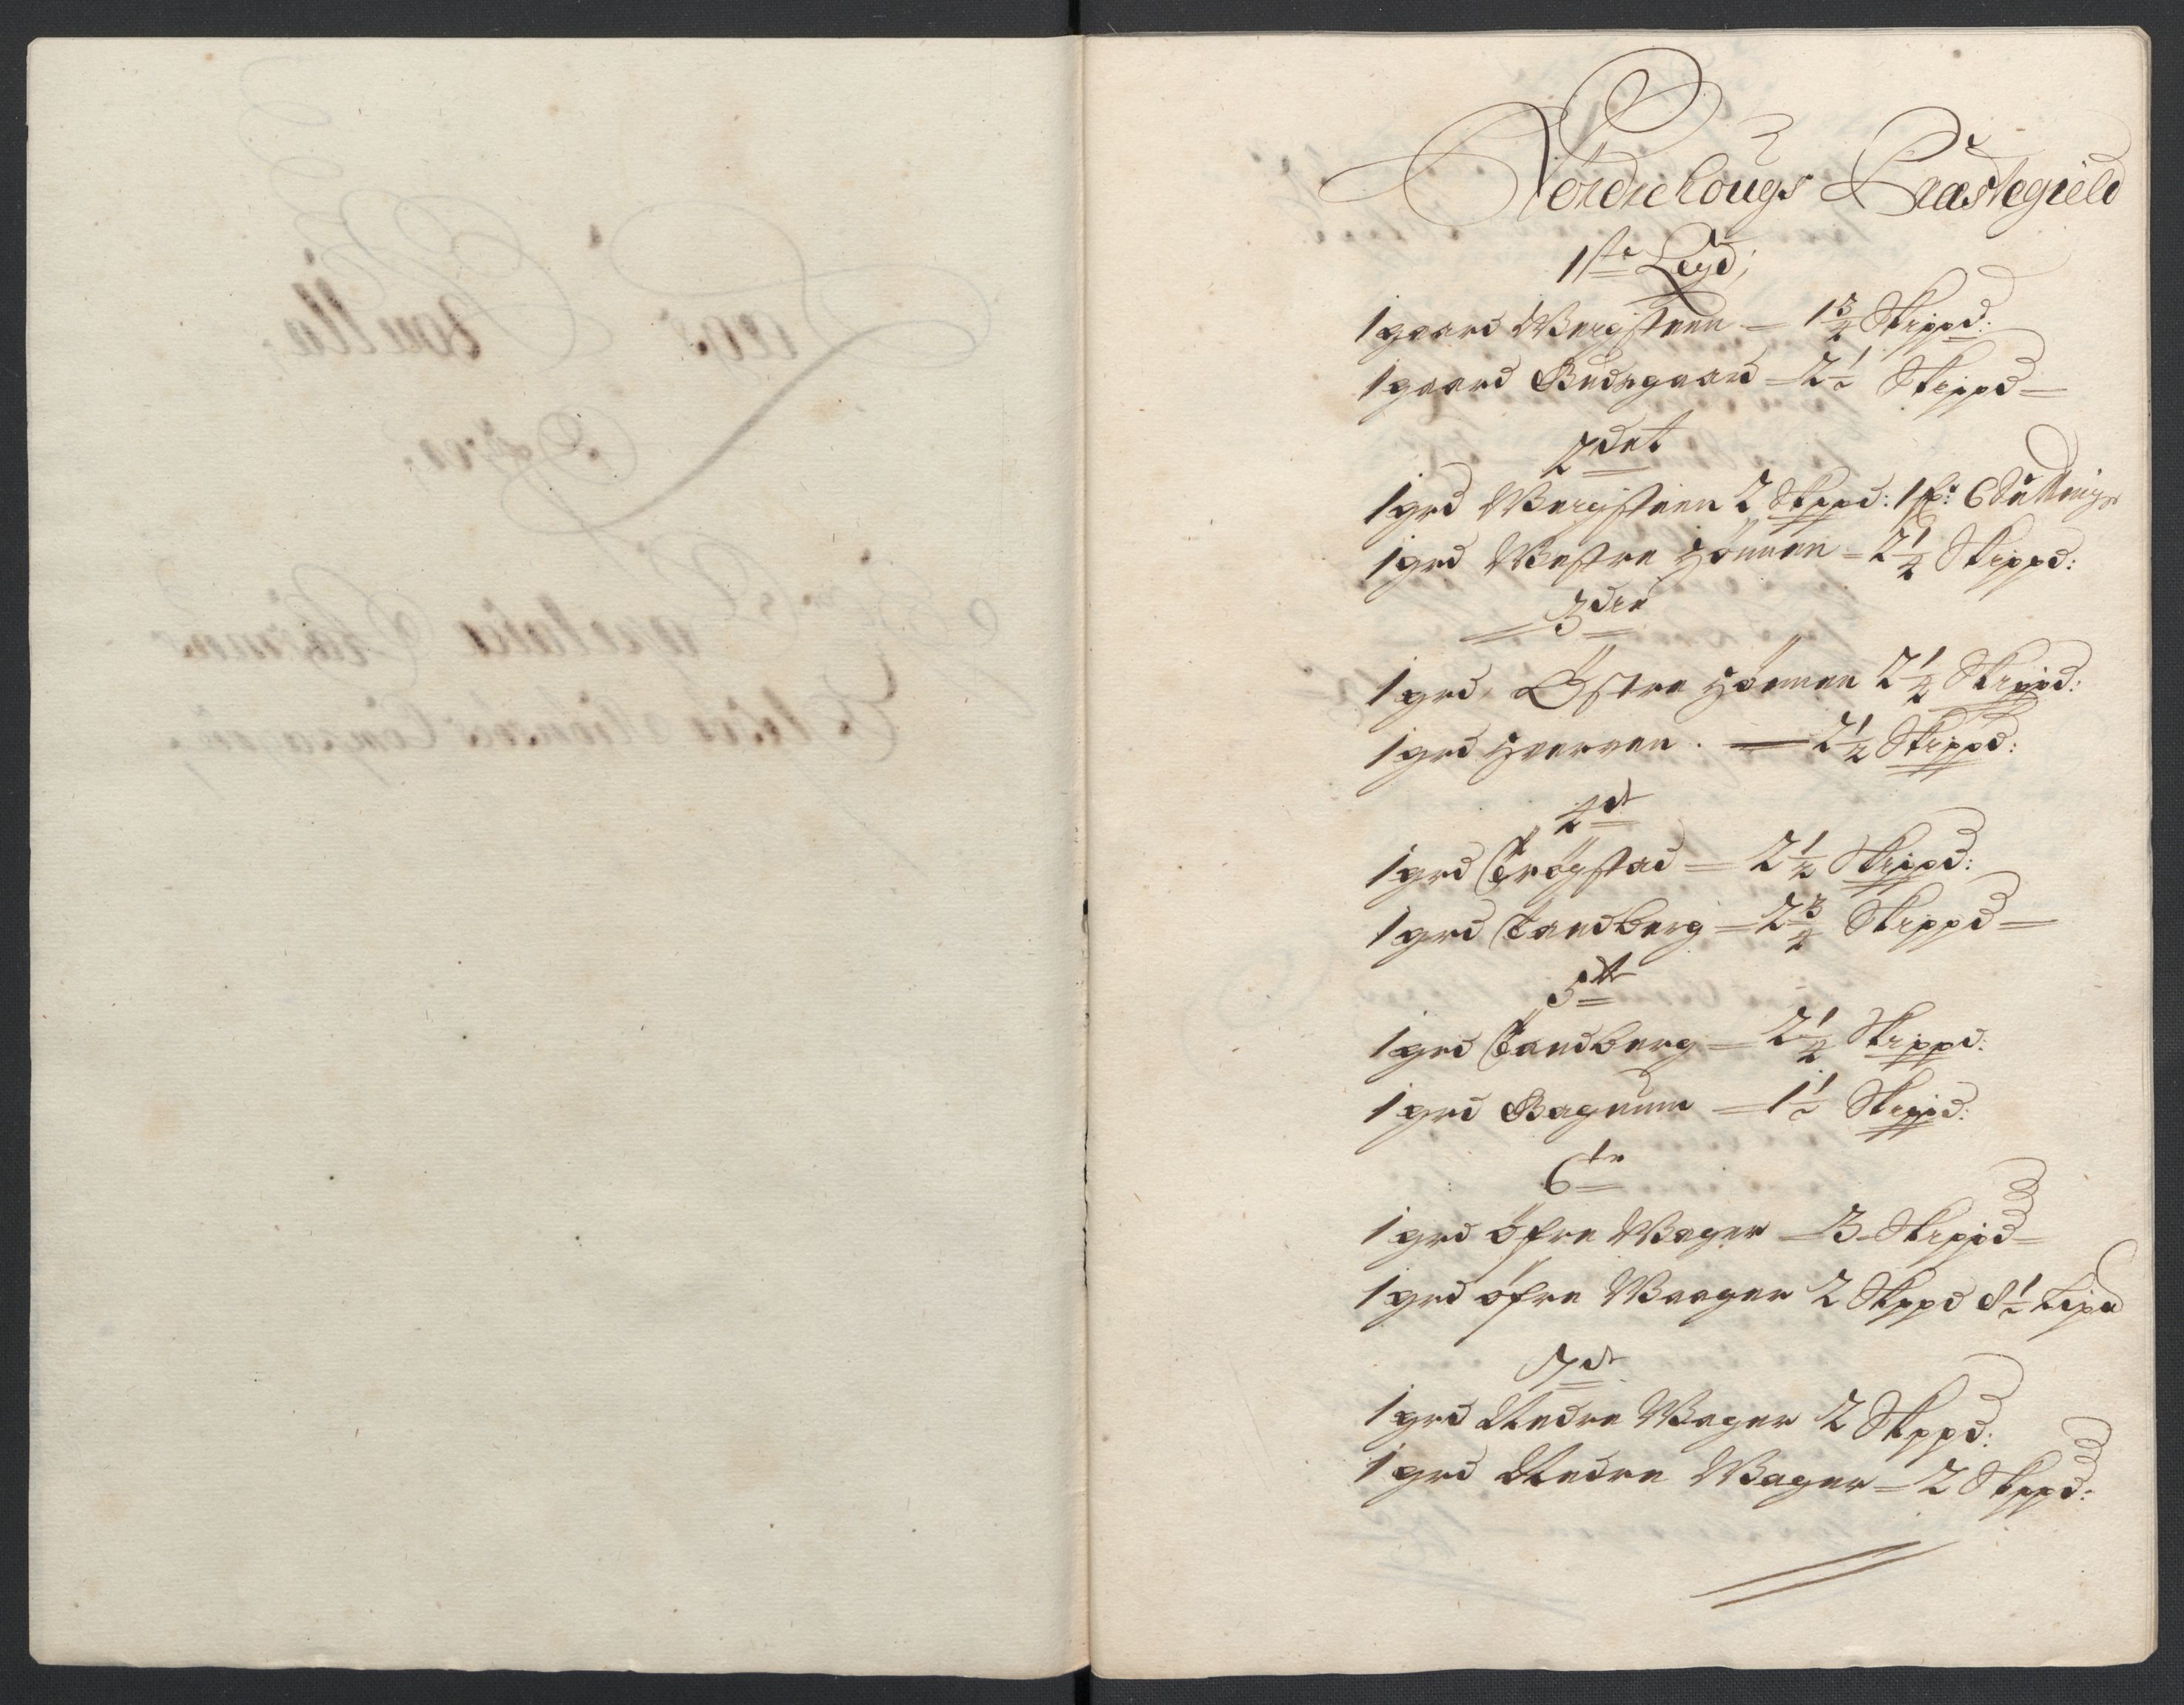 Nordrehougs Præstegield
1ste Legd;
1 gaard Bergsteen - 1 3/4 Skippd:
1 gaard Budsgaard - 2 1/2 Skippd
2det
1 grd Bergsteen 2 Skppd: 1 f: 6 Sættings
1 grd Westre Hønnen - 2 1/4 Skippd:
3die
1 grd Østre Hønnen 2 1/4 Skippd:
1 grd Hverven. - 2 1/2 Skippd:
4de
1 grd Trøgstad - 2 1/2 Skippd:
1 grd Tandberg - 2 3/4 Skippd
5te
1 grd Tandberg - 2 1/4 Skippd:
1 grd Bagnum - 1 1/2 Skippd:
6te
1 grd Øfre Wager - 3 Skippd
1 grd øfre Waager 2 Skppd 8 1/2 Lispd
7de
1 grd Nedre Wager 2 Skppd:
1 grd Nedre Wager - 2 Skppd: